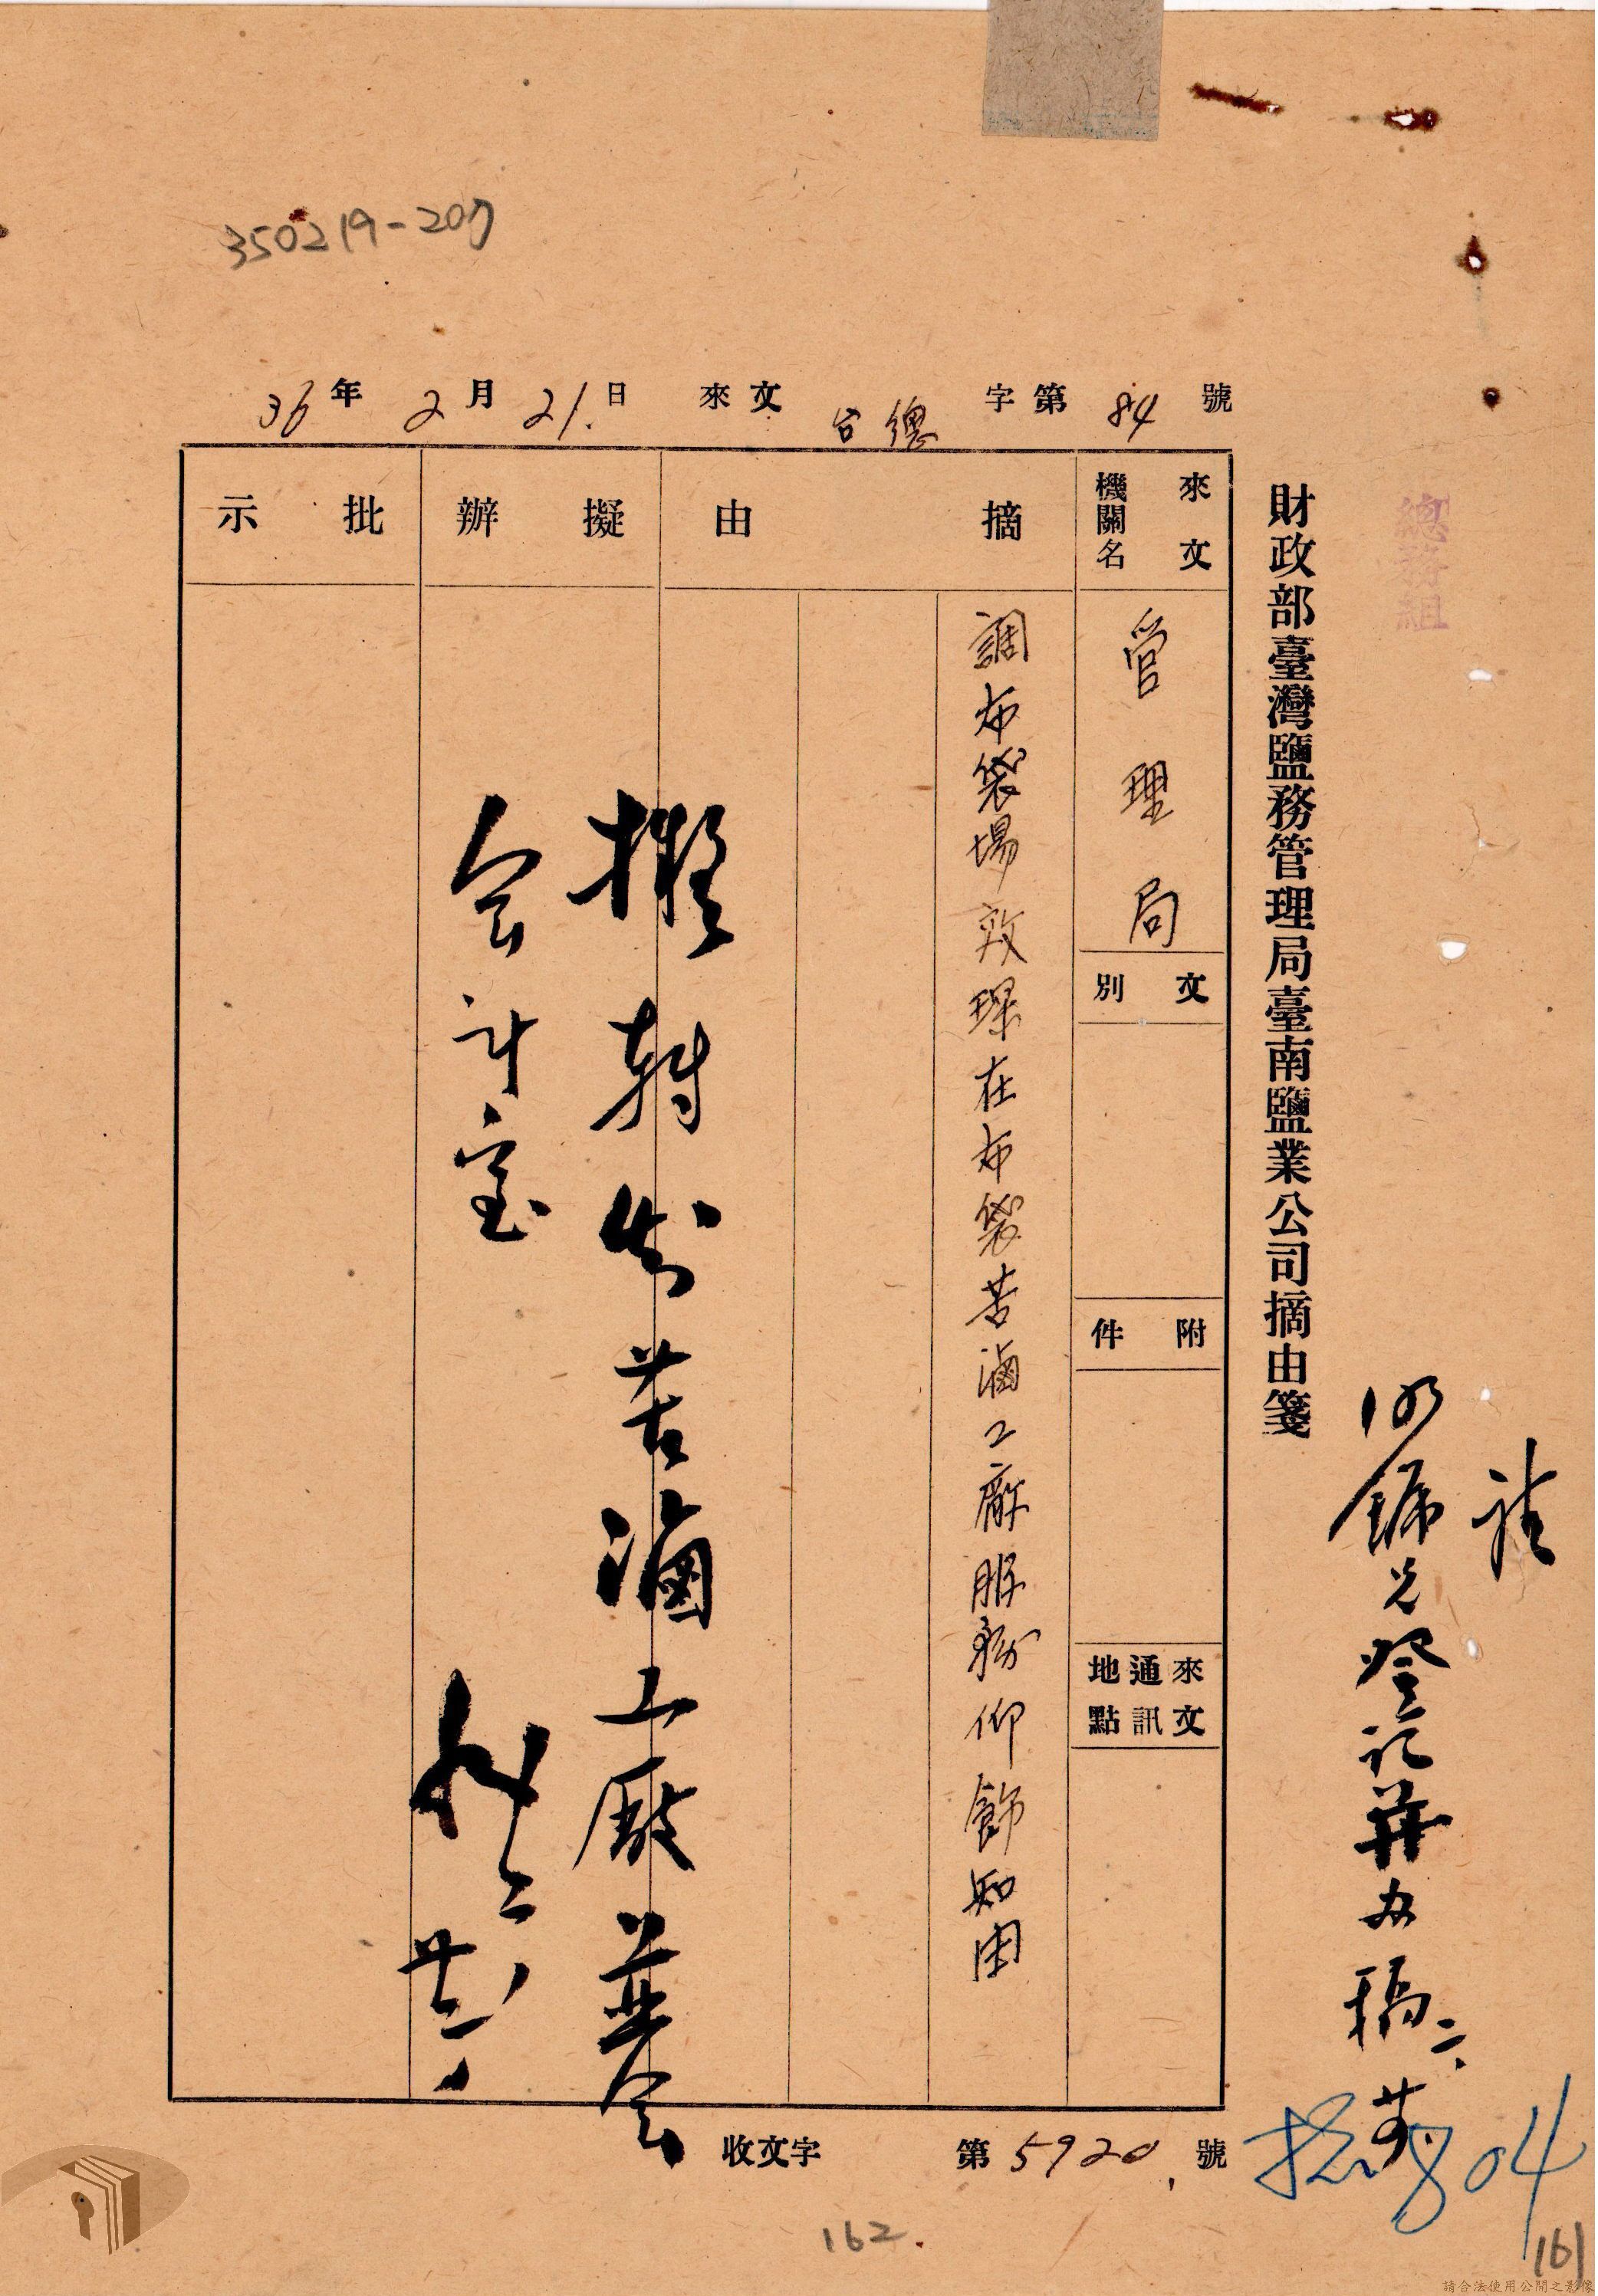 350219-207
36年2月21.日 來文 台總字第84號
財政部臺灣鹽務管理局臺南鹽業公司摘由箋
總務組
來文機關名
管理局
文別
附件
來文通訊地點
摘由
調布袋場
在布袋苦滷工廠服務仰飭知由
擬辦
擬轉知苦滷工廠並会
会計室
批示
請
登記
办稿
收文字第5920號
804
162.
161
請合法使用公開之影像